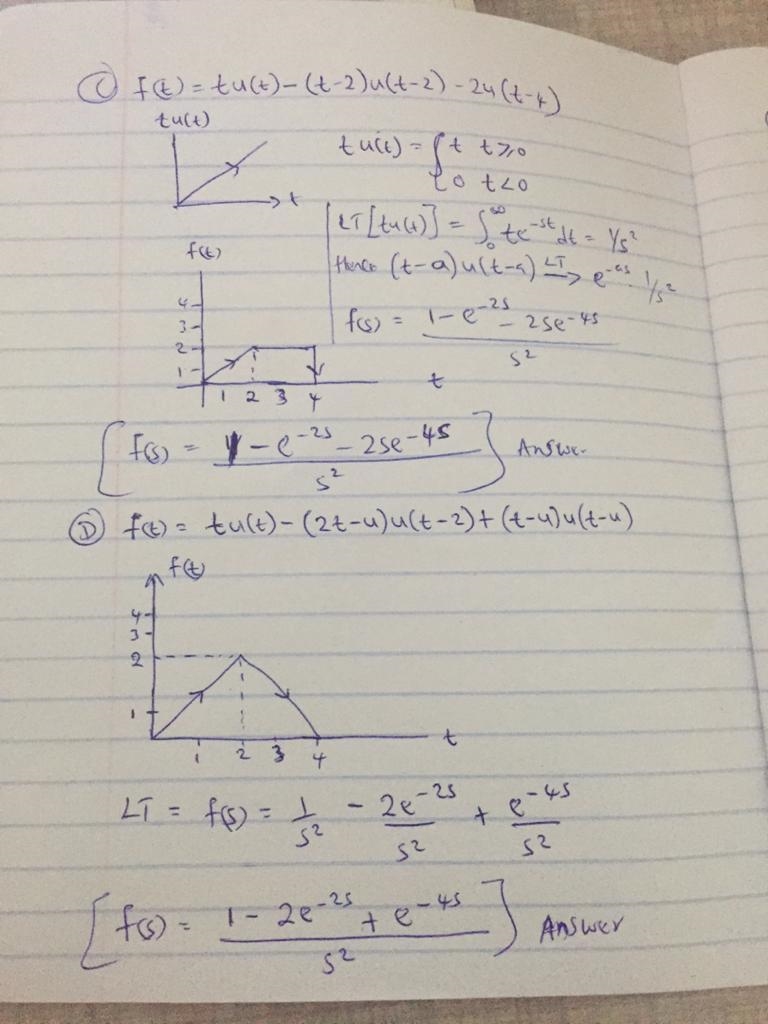 (C) f(t) = tu(t) - (t-2)u(t-2) - 2u(t-4)
tu(t)
t
tu(t) = { t t≥0
0 t<0
LT[tu(t)] = ∫₀^∞ te^-st dt = 1/s²
Hence (t-a)u(t-a) LT→ e^-as · 1/s²
f(s) = (1 - e^-2s - 2se^-4s) / s²
f(t)
4
3
2
1
1 2 3 4
t
[ f(s) = (1 - e^-2s - 2se^-4s) / s² ] Answer
(D) f(t) = tu(t) - (2t-4)u(t-2) + (t-4)u(t-4)
f(t)
4
3
2
1
1 2 3 4
t
LT = f(s) = 1/s² - 2e^-2s/s² + e^-4s/s²
[ f(s) = (1 - 2e^-2s + e^-4s) / s² ] Answer